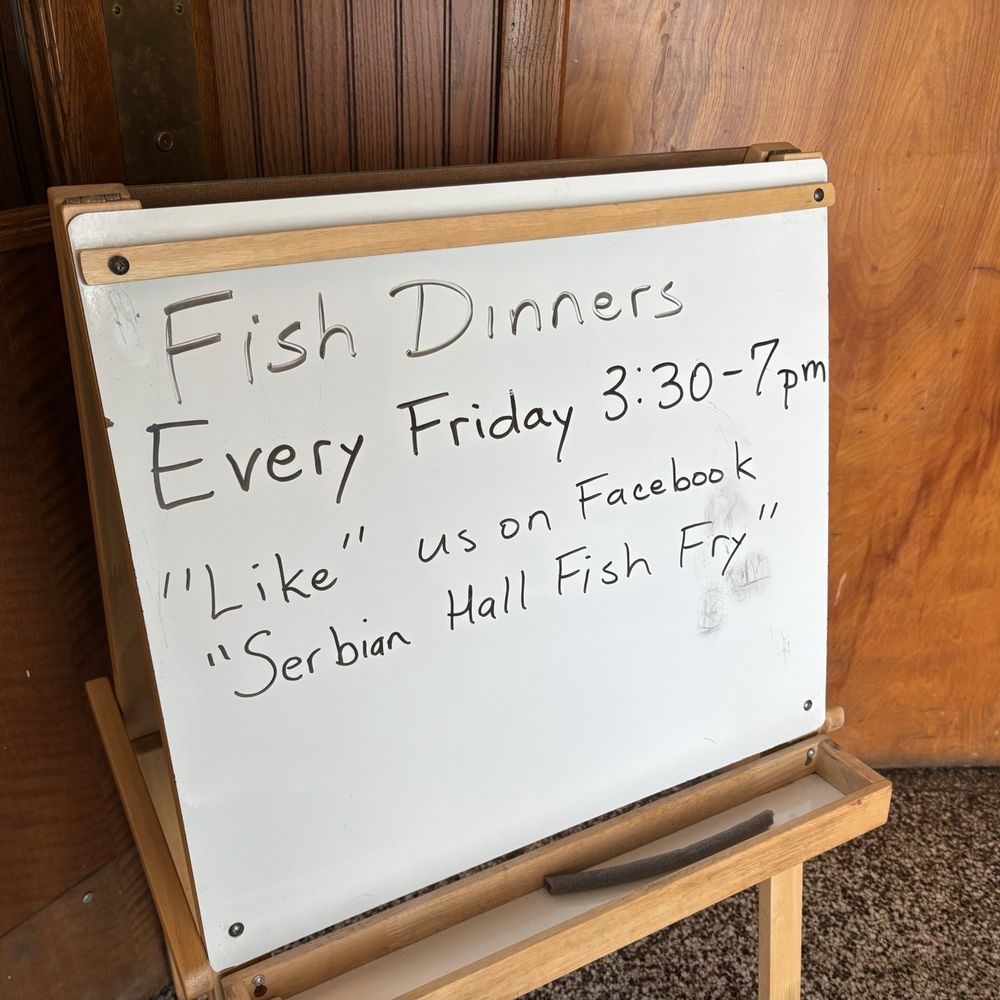 Fish Dinners
Every Friday 3:30-7pm
"Like" us on Facebook
"Serbian Hall Fish Fry"